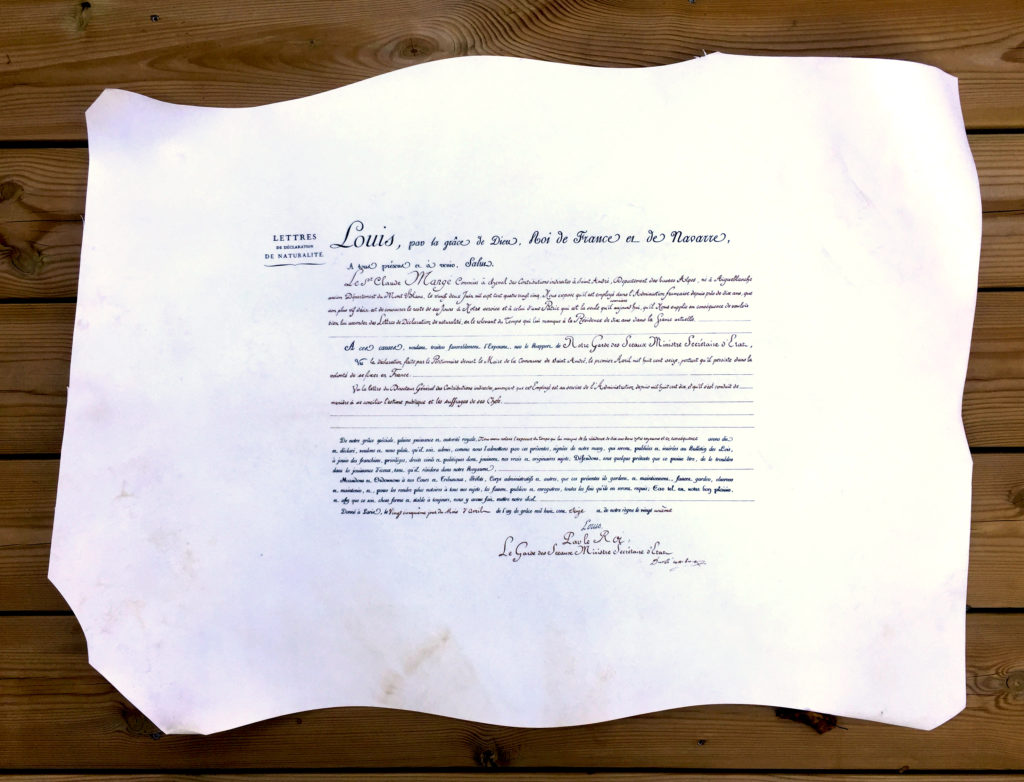 LETTRES
DE DÉCLARATION
DE NATURALITÉ.
Louis, par la grâce de Dieu, Roi de France et de Navarre,
A tous présens et à venir, Salut.
Le Sr Claude Marge Commis à cheval des Contributions indirectes à Saint André, Département des basses Alpes, né à Aigueblanche
ancien Département du Mont Blanc, le vingt deux Juin mil sept cent quatre vingt cinq, Nous expose qu'il est employé dans l'Administration française depuis près de dix ans, que
son plus vif désir est de consacrer le reste de ses jours à Notre service et à celui d'une Patrie qui est la seule qu'il connaisse aujourd'hui, qu'il Nous supplie en conséquence de vouloir
bien lui accorder des Lettres de Déclaration de naturalité, en le relevant du Temps qui lui manque à la Résidence de dix ans dans la France actuelle.
A ces causes, voulant traiter favorablement l'Exposant, sur le Rapport de Notre Garde des Sceaux Ministre Secrétaire d'Etat,
Vu la déclaration faite par le Pétitionnaire devant le Maire de la Commune de Saint André, le premier Avril mil huit cent seize, portant qu'il persiste dans la
volonté de se fixer en France.
Vu la lettre du Directeur Général des Contributions indirectes, annonçant que cet Employé est au service de l'Administration, depuis mil huit cent dix, et qu'il s'est conduit de
manière à se concilier l'estime publique et les suffrages de ses Chefs.
De notre grâce spéciale, pleine puissance et autorité royale, Nous avons relevé l'exposant du Temps qui lui manque de la résidence de dix ans dans notre royaume et en conséquence avons dit
et déclaré, voulons et nous plaît, qu'il soit admis, comme nous l'admettons par ces présentes, signées de notre main, qui seront publiées et insérées au Bulletin des Lois,
à jouir des franchises, privilèges, droits civils et politiques dont jouissent nos vrais et originaires sujets. Défendons que quelque prétexte que ce puisse être, de le troubler
dans la jouissance d'iceux, tant qu'il résidera dans notre Royaume.
Mandons et Ordonnons à nos Cours et Tribunaux, Préfets, Corps administratifs et autres, que ces présentes ils gardent et maintiennent, fassent garder, observer
et maintenir, et, pour les rendre plus notoires à tous nos sujets, les fassent publier et enregistrer, toutes les fois qu'ils en seront requis; Car tel est notre bon plaisir.
et afin que ce soit chose ferme et stable à toujours, nous y avons fait mettre notre scel.
Donné à Paris, le Vingt cinquième jour du Mois d'Avril de l'an de grâce mil huit cent seize et de notre règne le vingt unième
Louis
Par le Roi,
Le Garde des Sceaux Ministre Secrétaire d'Etat